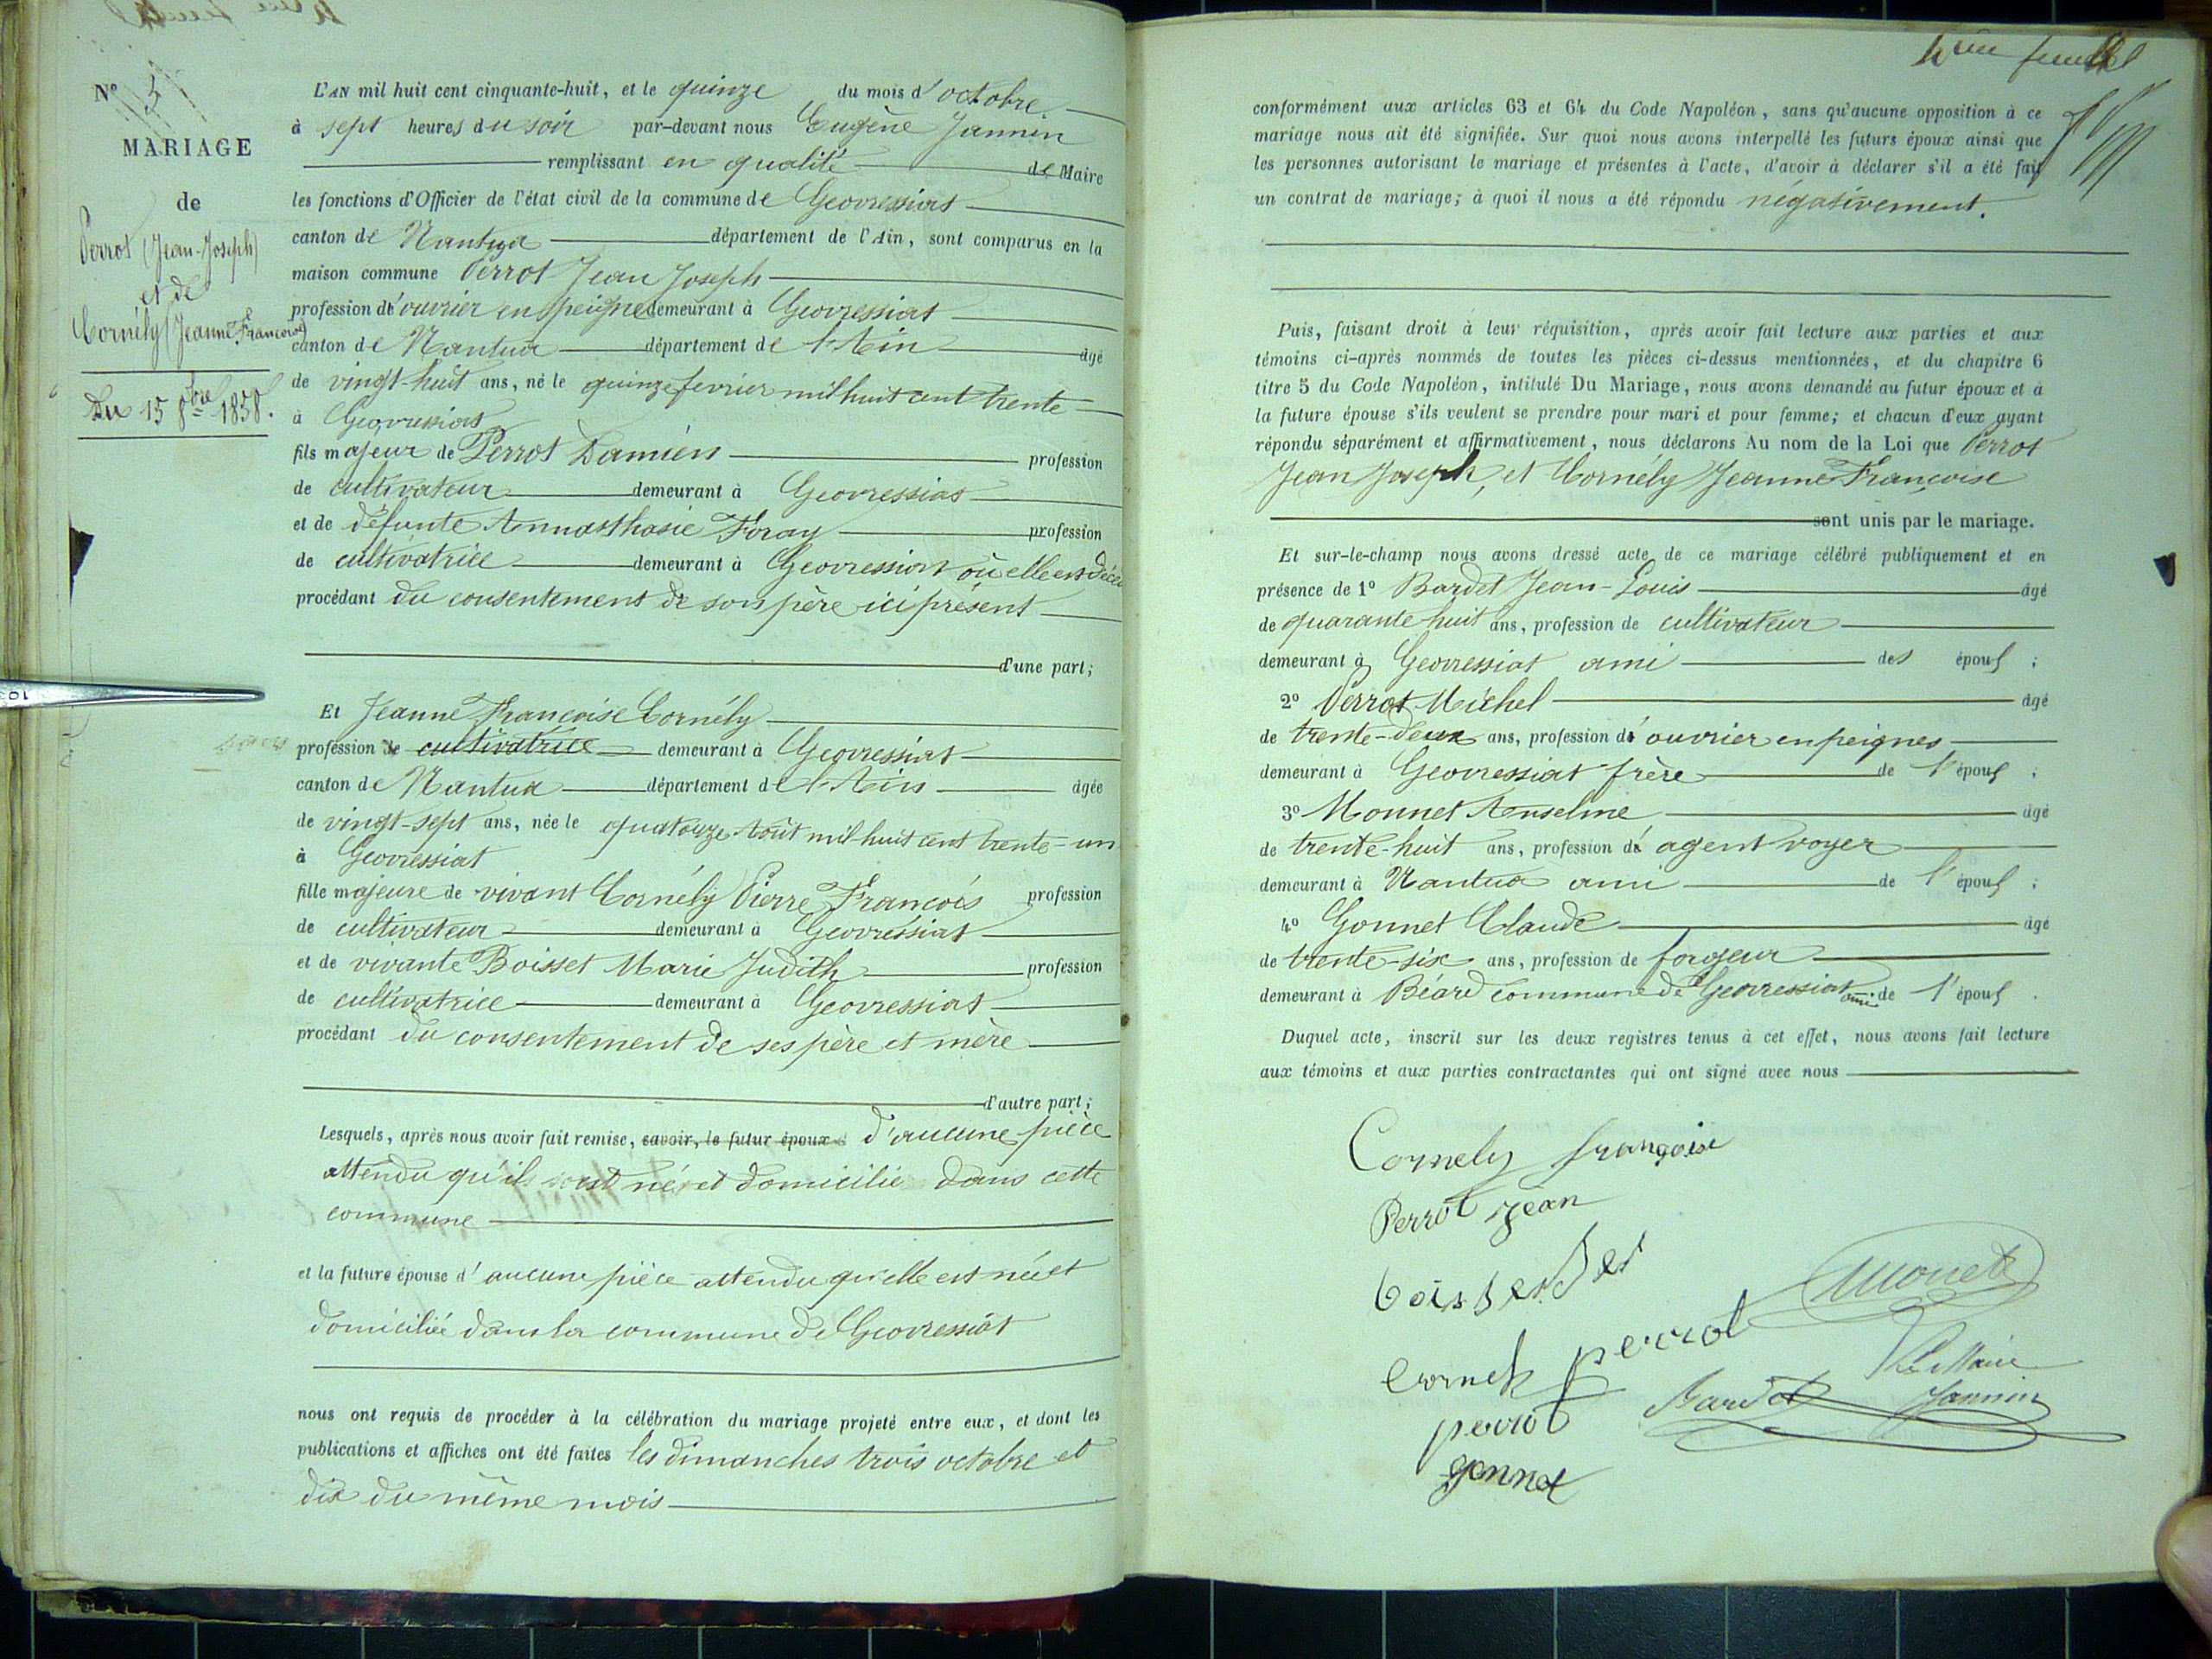 N° 5
MARIAGE
de
Perrot (Jean-Joseph)
et de
Cornély (Jeanne Françoise)
Du 15 8bre 1858.
L'AN mil huit cent cinquante-huit, et le quinze du mois d'octobre
à sept heures du soir par-devant nous Eugène Jannin
remplissant en qualité de Maire
les fonctions d'Officier de l'état civil de la commune de Geovressiat
canton de Nantua département de l'Ain, sont comparus en la
maison commune Perrot Jean Joseph
profession d'ouvrier en peigne demeurant à Geovressiat
canton de Nantua département de l'Ain âgé
de vingt-huit ans, né le quinze fevrier mil huit cent trente
à Geovressiat
fils majeur de Perrot Damien profession
de cultivateur demeurant à Geovressiat
et de défunte Annasthasie Foray profession
de cultivatrice demeurant à Geovressiat où elle est décé
procédant du consentement de son père ici présent
d'une part;
Et Jeanne Françoise Cornély
profession de cultivatrice demeurant à Geovressiat
canton de Nantua département de l'Ain âgée
de vingt-sept ans, née le quatorze Août mil huit cent trente-un
à Geovressiat
fille majeure de vivant Cornély Pierre François profession
de cultivateur demeurant à Geovressiat
et de vivante Boisset Marie Judith profession
de cultivatrice demeurant à Geovressiat
procédant du consentement de ses père et mère
d'autre part;
Lesquels, après nous avoir fait remise, savoir, le futur époux d'aucune pièce
attendu qu'il est né et domicilié dans cette
commune
et la future épouse d'aucune pièce attendu qu'elle est née et
domiciliée dans la commune de Geovressiat
nous ont requis de procéder à la célébration du mariage projeté entre eux, et dont les
publications et affiches ont été faites les dimanches trois octobre et
dix du même mois
feuillet
conformément aux articles 63 et 64 du Code Napoléon, sans qu'aucune opposition à ce
mariage nous ait été signifiée. Sur quoi nous avons interpellé les futurs époux ainsi que
les personnes autorisant le mariage et présentes à l'acte, d'avoir à déclarer s'il a été fait
un contrat de mariage; à quoi il nous a été répondu négativement.
Puis, faisant droit à leur réquisition, après avoir fait lecture aux parties et aux
témoins ci-après nommés de toutes les pièces ci-dessus mentionnées, et du chapitre 6
titre 5 du Code Napoléon, intitulé Du Mariage, nous avons demandé au futur époux et à
la future épouse s'ils veulent se prendre pour mari et pour femme; et chacun d'eux ayant
répondu séparément et affirmativement, nous déclarons Au nom de la Loi que Perrot
Jean Joseph, et Cornély Jeanne Françoise
sont unis par le mariage.
Et sur-le-champ nous avons dressé acte de ce mariage célébré publiquement et en
présence de 1° Bardet Jean-Louis âgé
de quarante huit ans, profession de cultivateur
demeurant à Geovressiat ami des épouf ;
2° Perrot Michel âgé
de trente-deux ans, profession d'ouvrier en peignes
demeurant à Geovressiat frère de l'épouf ;
3° Monnet Anselme âgé
de trente-huit ans, profession d'agent voyer
demeurant à Nantua ami de l'épouf ;
4° Gonnet Claude âgé
de trente-six ans, profession de forgeur
demeurant à Béard commune de Geovressiat ami de l'épouf .
Duquel acte, inscrit sur les deux registres tenus à cet effet, nous avons fait lecture
aux témoins et aux parties contractantes qui ont signé avec nous
Cornely françoise
Perrot jean
Monet
perrot
Le Maire
Bardet Jannin
perrot
gonnet